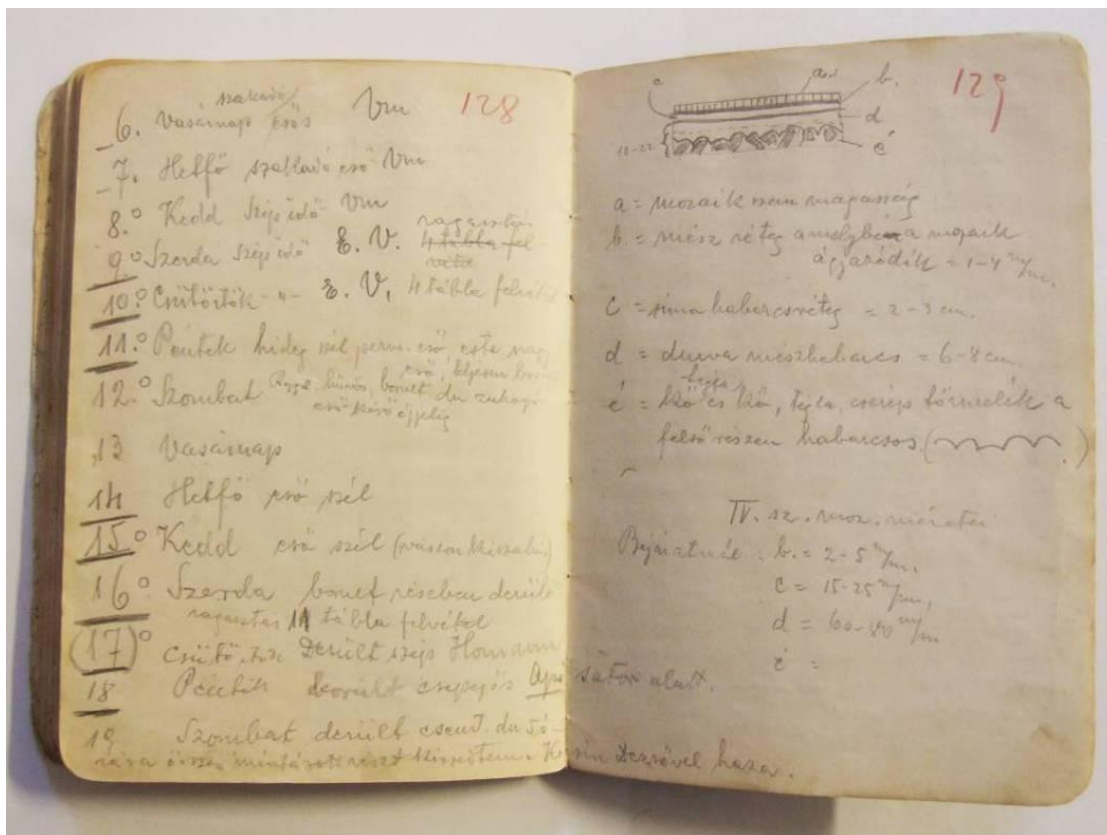 128
szakadó
6. Vasárnap esős Vm
7. Hetfő szakadó eső Vm
8.° Kedd Szép idő Vm
ragasztás
9° Szerda Szép idő E. V. 4 tábla fel-
vétel
10.° Csütörtök -"- E. V. 4 tábla felvétel
11.° Péntek hideg szél perm. eső, este nagy
eső, teljesen
12.° Szombat Reggel hűvös, borult du zuhogó
eső késő éjjelig
13 Vasárnap
14 Hetfő eső szél
15° Kedd eső szél
16° Szerda borult részben derült
ragasztás 11 tábla felvétel
(17)° Csütörtök Derült szép Homann
18 Péntek borult csepegős sátor alatt.
19 Szombat derült csend. du 5 ó-
rára összes részt Dezsővel haza.
129
a b.
c
d
18-22 é
a = mozaik szem magasság
b. = mész réteg amelyben a mozaik
ágyazódik = 1-4 m/m.
c = sima habarcsréteg = 2-3 cm.
d = durva mészhabarcs = 6-8 cm
é = kő és kő, tégla, cserép törmelék a
felső részen habarcsos ( )
IV. sz. moz. méretei
Bejáratnál: b. = 2-5 m/m.
c = 15-25 m/m,
d = 60-80 m/m
é =